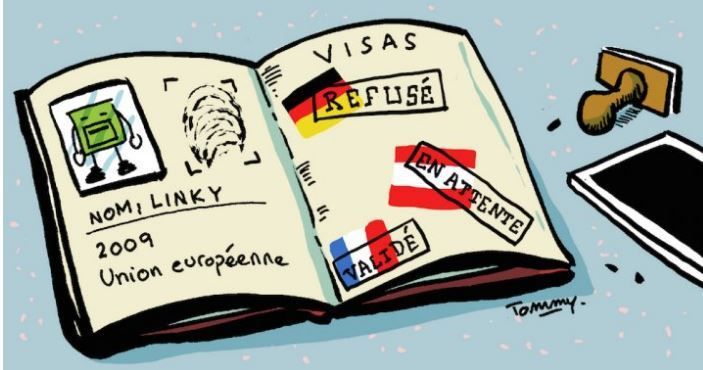 NOM: LINKY
2009
Union européenne
VISAS
REFUSÉ
EN ATTENTE
VALIDÉ
Tommy.